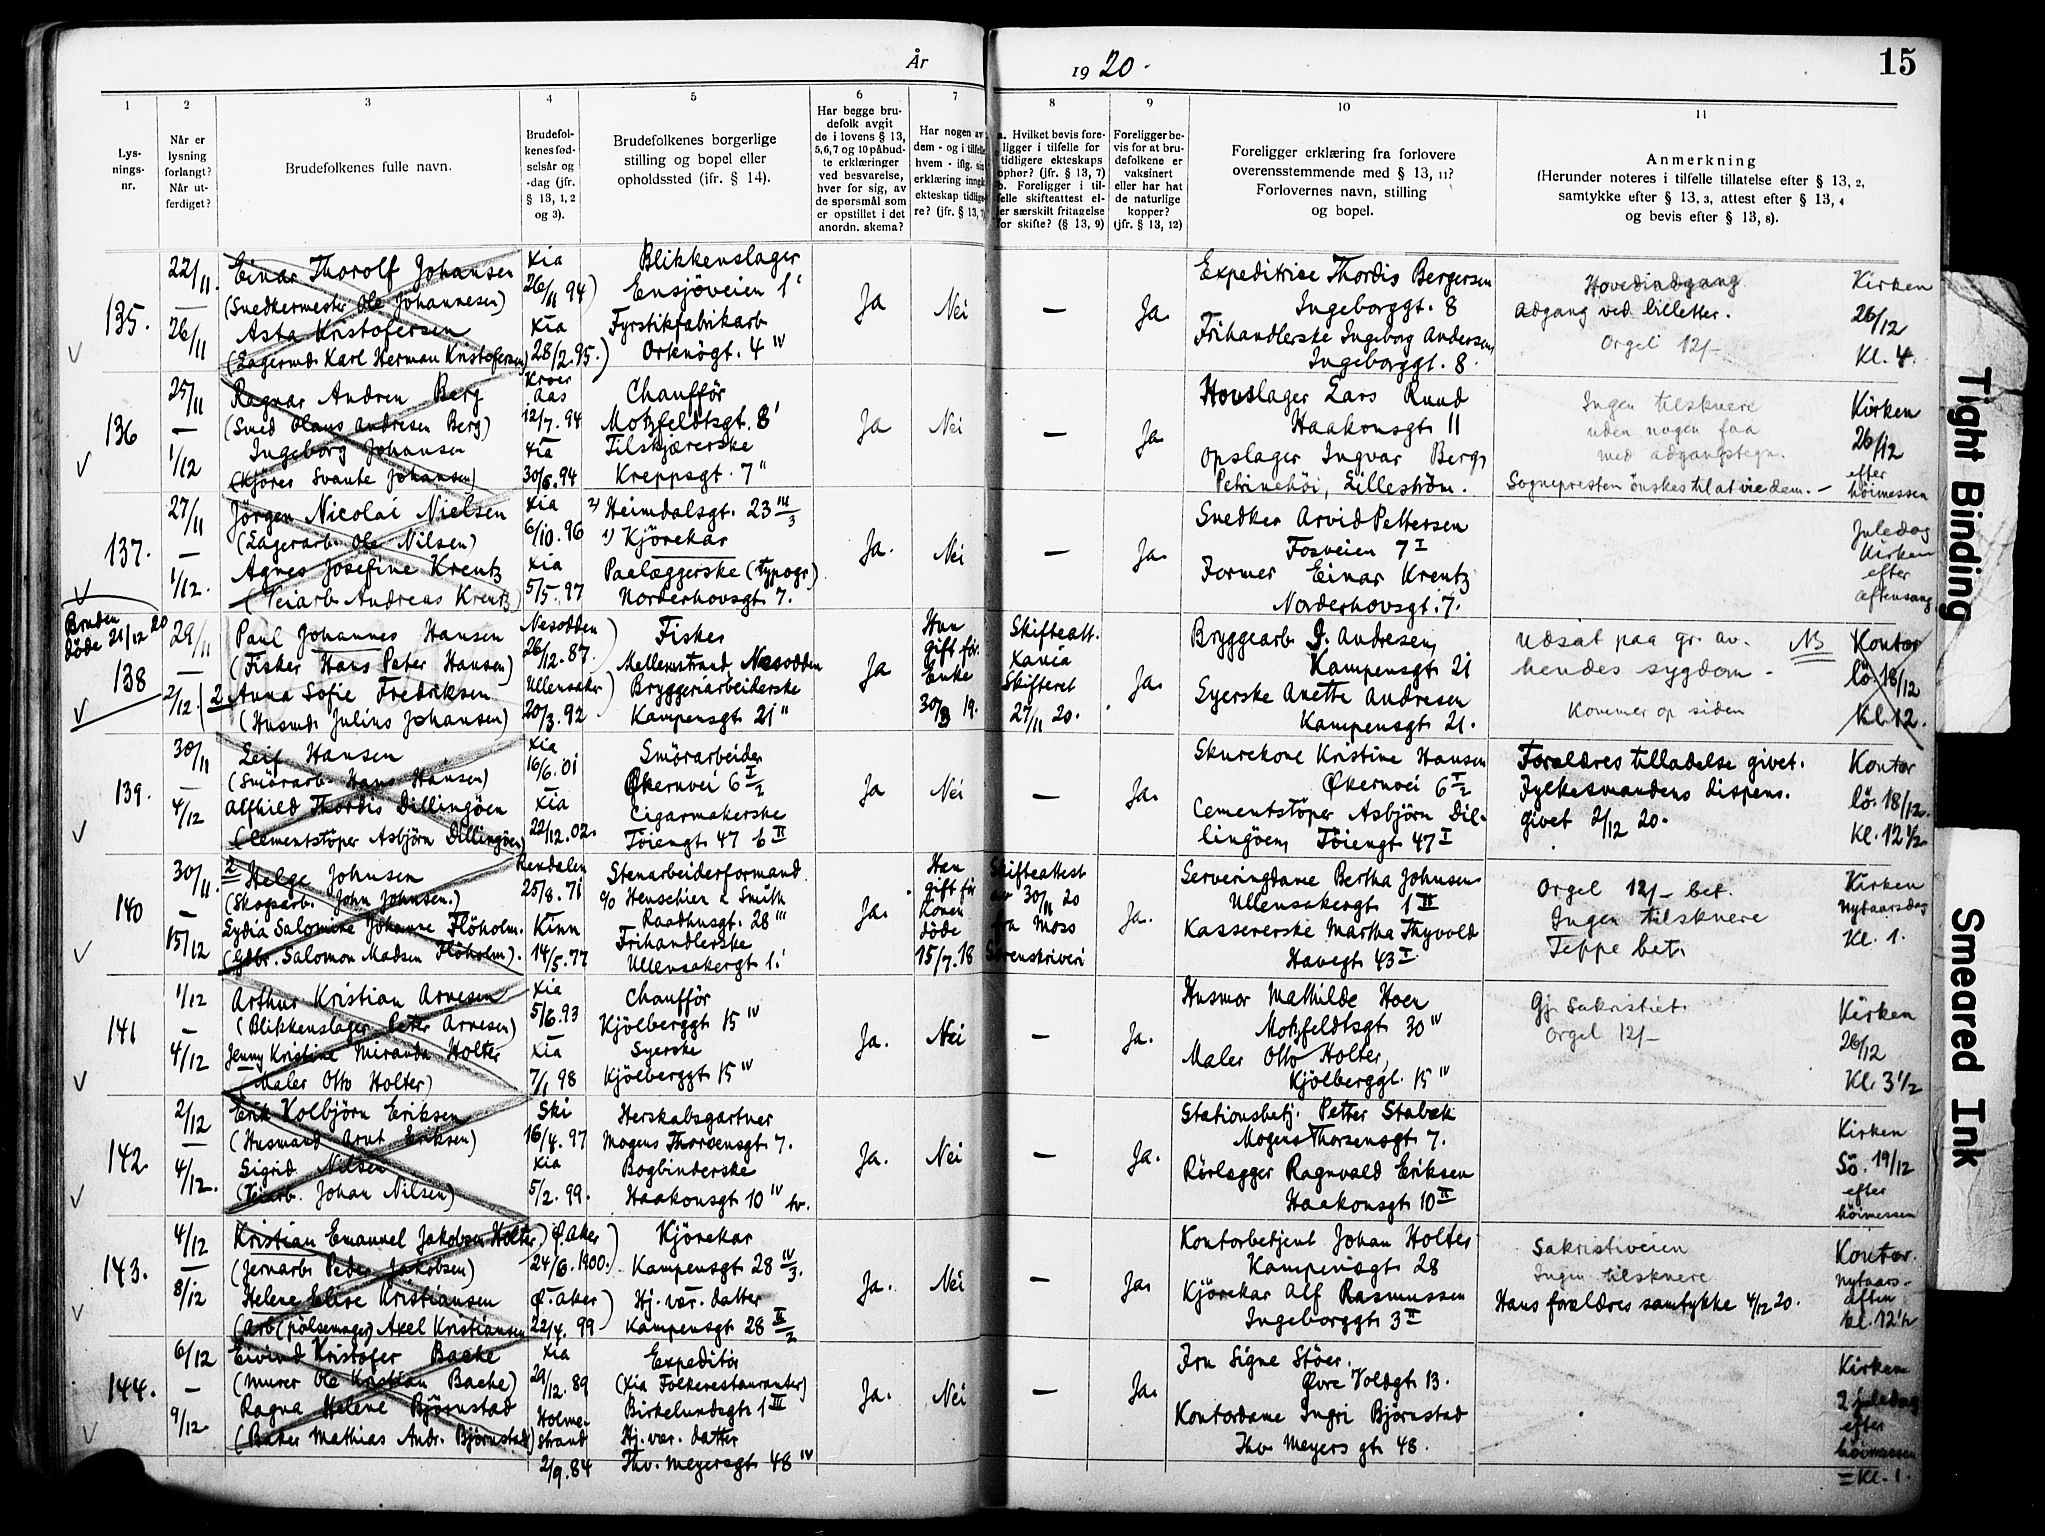 År 1920.
15
1
2
3
4
5
6
7
8
9
10
11
Lys-
nings-
nr.
Når er
lysning
forlangt?
Når ut-
ferdiget?
Brudefolkenes fulle navn.
Brudefol-
kenes fød-
selsår og
-dag (jfr.
§ 13, 1, 2
og 3).
Brudefolkenes borgerlige
stilling og bopel eller
opholdssted (ifr. § 14).
Har begge bru-
defolk avgit
de i lovens § 13,
5, 6, 7 og 10 påbud-
te erklæringer
ved besvarelse,
hver for sig, av
de spørsmål som
er opstillet i det
anordn. skema?
Har nogen av
dem - og i tilfelle
hvem - iflg. sin
erklæring inngå
ekteskap tidlige-
re? (jfr. § 13, 7
a. Hvilket bevis fore-
ligger i tilfelle for
tidligere ekteskaps
ophør? (jfr. § 13, 7)
b. Foreligger i til-
felle skifteattest el-
ler særskilt fritagelse
for skifte? (§ 13, 9)
Foreligger be-
vis for at bru-
defolkene er
vaksinert
eller har hat
de naturlige
kopper?
(jfr. § 13, 12)
Foreligger erklæring fra forlovere
overensstemmende med § 13, 11?
Forlovernes navn, stilling
og bopel.
Anmerkning
(Herunder noteres i tilfelle tillatelse efter § 13, 2,
samtykke efter § 13, 3, attest efter § 13, 4
og bevis efter § 13, 8).
135.
22/11.
—
26/11
Einar Thorolf Johansen
(Snedkermester Ole Johannesen)
Asta Kristofersen
(Lagermd. Karl Herman Kristofersen)
Xia
26/11 94)
Xia
28/2. 95.)
Blikkenslager
Ensjøveien 1'
Fyrstikfabrikarb
Orknögt. 4 IV
Ja
Nei
—
Ja.
Expeditrice Thordis Bergersen
Ingeborggt. 8
Frihandlerske Ingeborg Andersen,
Ingeborggt. 8.
Hovedindgang
Adgang ved billetter.
Orgel 12/-
Kirken
26/12
Kl. 4.
136
25/11
—
1/12
Ragnar Andren Berg
(Sned Olaus Andresen Berg)
Ingeborg Johansen
(Kjörer Svante Johansen)
Kroer
Aas
12/7. 94
Xia
30/6. 94
Chaufför
Motzfeldtsgt. 8'
Tilskjærerske
Kreppsgt. 7"
Ja
Nei
—
Ja.
Hovslager Lars Ruud
Haakonsgt 11
Opslager Ingvar Berg,
Petrinehöi, Lilleström.
Ingen tilskuere
uden nogen faa
med adgangstegn.
Sognepresten önskes til at vie dem. —
Kirken
26/12
efter
höimessen
137.
27/11
—
1/12.
Jörgen Nicolai Nielsen
(Lagerarb. Ole Nilsen)
Agnes Josefine Krentz
(Veiarb. Andreas Krentz)
Xia
6/10. 96
Xia
5/5. 97
2) Heimdalsgt. 23 III/3
1) Kjörekar
Paalæggerske (typogr.)
Norderhovsgt. 7.
Ja.
Nei
—
Ja.
Snedker Arvid Pettersen
Fosveien 7 I
Former Einar Krentz
Norderhovsgt. 7.
Juledag
Kirken
efter
aftensang
Bruden
döde 21/12 20
138
29/11
2/12.
Paul Johannes Hansen
(Fisker Hans Peter Hansen)
2 Anna Sofie Fredriksen
(Husmd. Julius Johansen)
Nesodden
26/12. 87.
Ullensaker
20/3. 92
Fisker
Mellemstrand, Nesodden
Bryggeriarbeiderske
Kampensgt. 21"
Ja
Hun
gift för.
Enke
30/3 19.
Skifteatt.
Xania
Skifteret
27/11 20.
Ja.
Bryggearb. J. Andresen,
Kampensgt. 21
Syerske Anette Andresen
Kampensgt. 21.
Udsat paa gr. av.
hendes sygdom.
Kommer op siden
NB
Kontor
lö 18/12
Kl. 12.
139.
30/11
—
4/12
Leif Hansen
(Smörarb. Hans Hansen)
Alfhild Thordis Dillingöen
(Cementstöper Asbjörn Dillingöen)
Xia
16/6. 01
Xia
22/12. 02.
Smörarbeider
Økernvei 6 I/2
Cigarmakerske
Töiengt 47 6 II
Ja
Nei
—
Ja.
Skurekone Kristine Hansen
Økernvei 6 I/2
Cementstöper Asbjörn Dil-
lingöen, Töiengt 47 I
Forældres tilladelse givet.
Fylkesmandens dispens.
givet 2/12 20.
Kontor
lö. 18/12.
Kl. 12 1/2
140
30/11.
—
15/12
2 Helge Johnsen
(Skogsarb. John Johnsen.)
Lydia Salomine Johanne Flöholm.
(Gdbr. Salomon Madsen Flöholm).
Rendalen
25/8. 71
Kinn
14/5. 77
Stenarbeiderformand
c/o Henschien & Smith
Raadhusgt. 28 "'
Frihandlerske
Ullensakergt 1.'
Ja.
Han
gift för
Konen
döde
15/7. 18
Skifteattest
av 30/11 20
fra Moss
Sorenskriveri
Ja.
Serveringdame Bertha Johnsen
Ullensakergt 1 II
Kassererske Martha Thyvold
Havegt 43 I
Orgel 12/- bet.
Ingen tilskuere
Teppe bet.
Kirken
Nytaarsdag
Kl. 1.
141
1/12
—
4/12
Arthur Kristian Arnesen
(Blikkenslager Peter Arnesen)
Jenny Kristine Miranda Holter
(Maler Otto Holter)
Xia
5/6. 93
Xia
7/1 98
Chaufför
Kjölberggt 15 IV
Syerske
Kjölberggt 15 IV
Ja.
Nei
—
Ja.
Husmor Mathilde Hoen
Motzfeldtsgt 30 IV
Maler Otto Holter,
Kjölberggt. 15 IV
Gj. Sakristiet
Orgel 12/-
Kirken
26/12
Kl. 3 1/2
142.
2/12
—
4/12.
Erik Kolbjörn Eriksen
(Husmand Arnt Eriksen)
Sigrid Nilsen
(Veiarb. Johan Nilsen)
Ski
16/4. 97
Xia
5/2. 99.
Herskabsgartner
Mogens Thorsensgt. 7.
Bogbinderske
Haakonsgt 10 IV tv.
Ja.
Nei
—
Ja.
Stationsbetj. Petter Stabæk
Mogens Thorsensgt 7.
Rörlægger Ragnvald Eriksen
Haakonsgt 10 II
Kirken
Sö. 19/12
efter
höimessen
143.
4/12
—
8/12
Kristian Emanuel Jakobsen Holter)
(Jernarb. Peder Jakobsen)
Helene Elise Kristiansen
(Arb. (pölsemager) Axel Kristiansen
Ø. Aker
24/6. 1900.
Ø. Aker
22/4. 99
Kjörekar
Kampensgt 28 IV/3.
Hj. vær. datter
Kampensgt 28 II/2
Ja.
Nei
—
Ja.
Kontorbetjent Johan Holter
Kampensgt 28
Kjörekar Alf Rasmussen
Ingeborggt 3 II
Sakristiveien
Ingen tilskuere
Hans forældres samtykke 4/12 20.
Kontor.
Nytaars-
aften
kl. 12 1/2
144.
6/12
—
9/12
Eivind Kristofer Bache
(Murer Ole Kristian Bache)
Ragna Helene Björnstad
(Baker Mathias Andr. Björnstad)
Xia
29/12. 89
Holme-
strand
2/9. 84
Expeditör
(Xia Folkerestauranter)
Birkelundsgt. 1 III
Hj. vær. datter
Thv. Meyersgt 48 IV
Ja.
Nei
—
Ja.
Fru Signe Stöer.
Övre Voldgt 13.
Kontordame Ingri Björnstad
Thv. Meyers gt 48.
Kirken
2 juledag
efter
höimessen
= Kl. 1.
Tight Binding
Smeared Ink